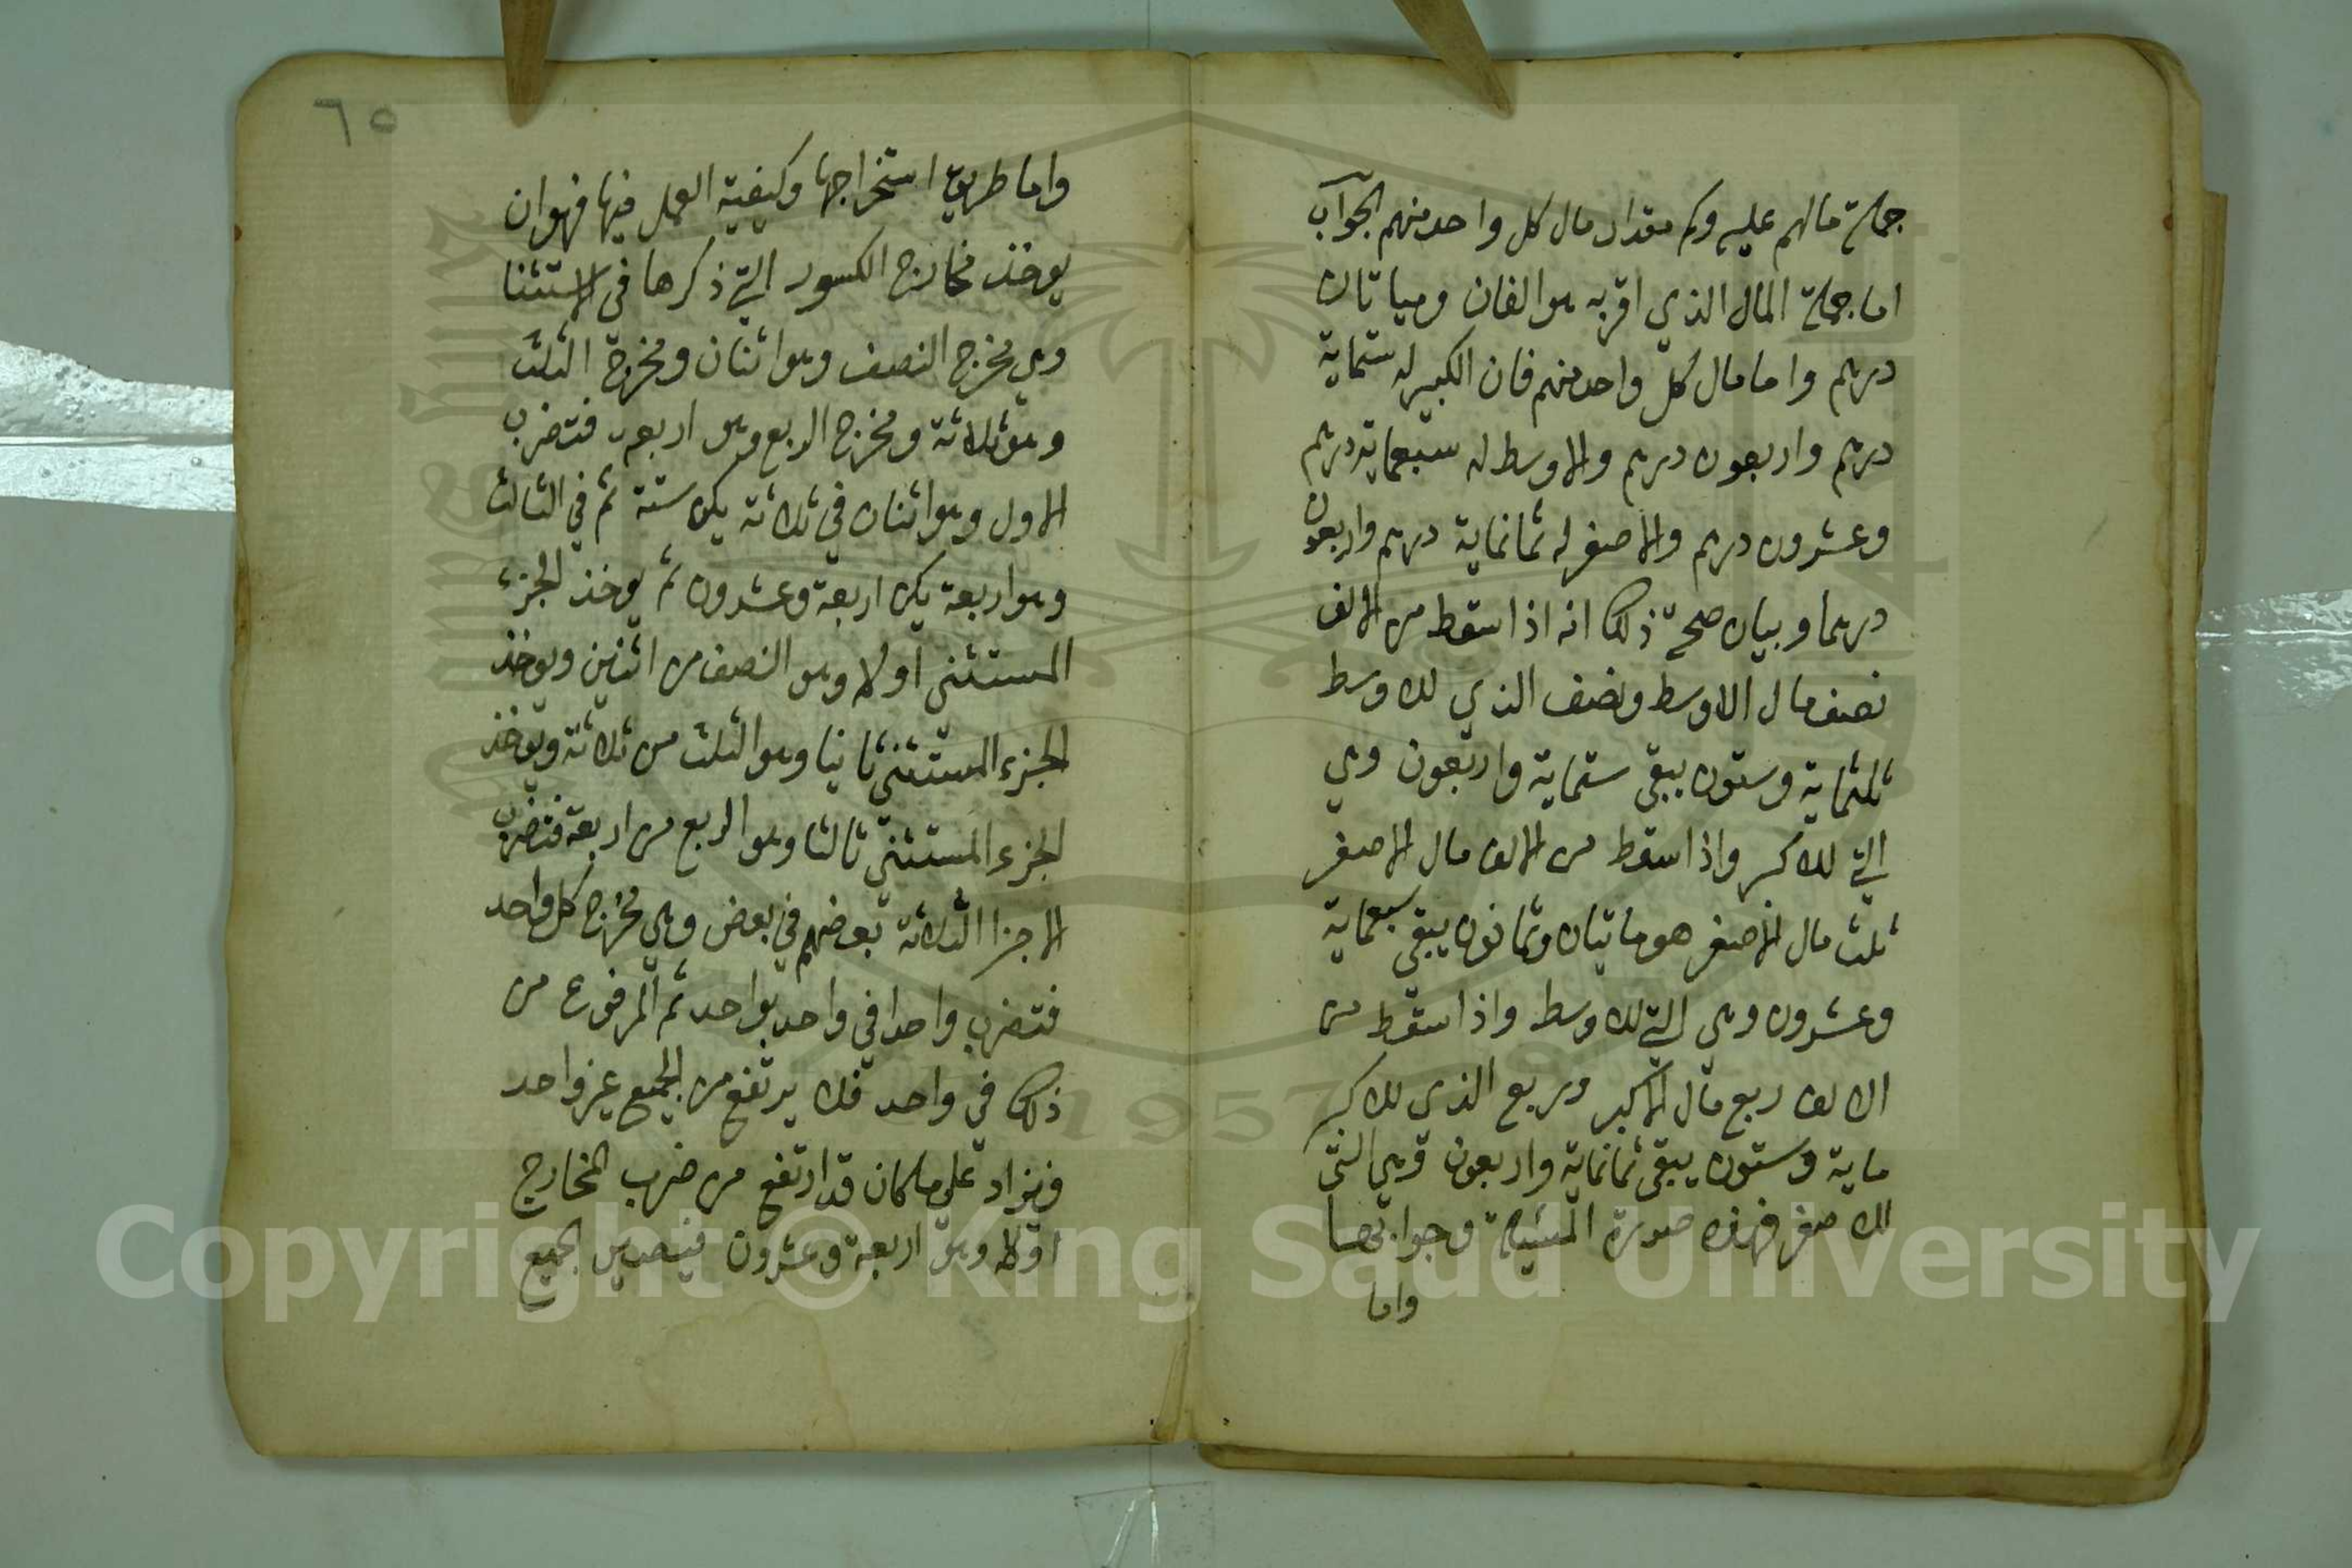 جملة مالهم عليه وكم مقدار مال كل واحد منهم الجواب
اما جملة المال الذي اقر به هو الفان ومياتان
درهم واما مال كل واحد منهم فان الكبير له ستماية
درهم واربعون درهم والاوسط له سبعماية درهم
وعشرون درهم والاصغر له ثمانماية درهم واربعون
درهما وبيان صحة ذلك انه اذا اسقط من الالف
نصف مال الاوسط ونصف الذي للاوسط
ثلثماية وستون يبقى ستماية واربعون وهي
التي للاكبر واذا اسقط من الالف مال الاصغر
ثلث مال الاصغر هو ماتيان وثمانون يبقى سبعماية
وعشرون وهي التي للاوسط واذا اسقط من
الالف ربع مال الاكبر وربع الذي للاكبر
ماية وستون يبقى ثمانماية واربعون وهي التي
للاصغر فهذه صورة المسئلة وجوابها
واما
٦٥
واما طريق استخراجها وكيفية العمل فيها فهو ان
يوخذ مخارج الكسور التي ذكرها في الاستثنا
وهي مخرج النصف وهو اثنان ومخرج الثلث
وهو ثلاثة ومخرج الربع وهو اربعه فتضرب
الاول وهو اثنان في ثلاثة يكن ستة ثم في الثالث
وهو اربعة يكن اربعة وعشرون ثم يوخذ الجزء
المستثنى اولا وهو النصف من اثنين ويوخذ
الجزء المستثنى ثانيا وهو الثلث من ثلاثة ويوخذ
الجزء المستثنى ثالثا وهو الربع من اربعة فتضرب
الاجزا الثلاثة بعضهم في بعض وهي مخرج كل واحد
فتضرب واحدا في واحد بواحد ثم المرفوع من
ذلك في واحد فلا يرتفع من الجميع غير واحد
فيزاد على ما كان قد ارتفع من ضرب المخارج
اولا وهو اربعة وعشرون فيصير الجميع
Copyright © King Saud University
1957